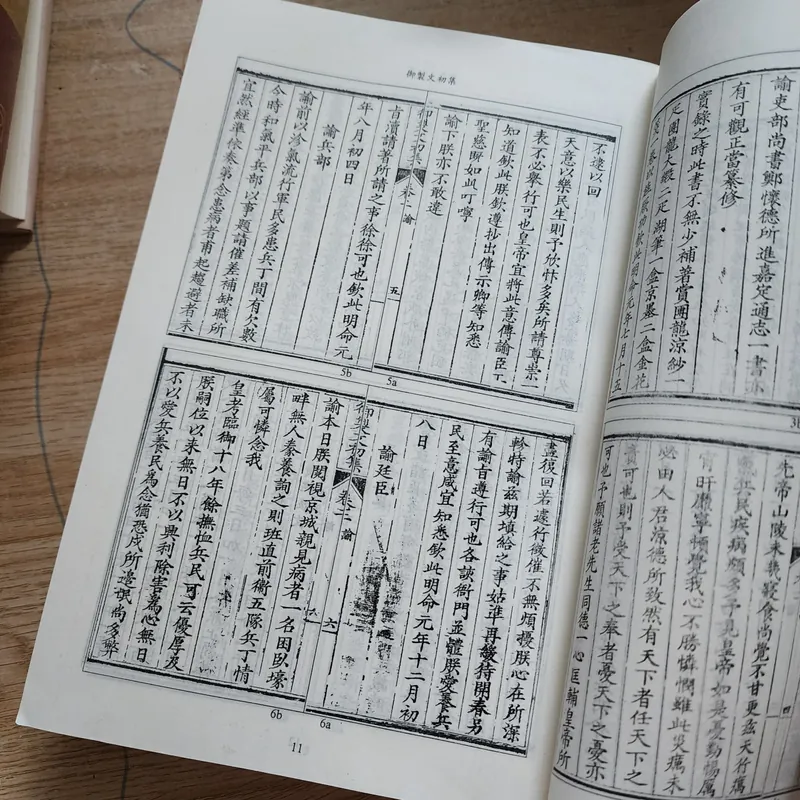 諭吏部尚書鄭懷德所進嘉定通志一書亦
有可觀正當纂修
實錄之時此書不無少補著賞團龍涼紗一
疋團龍大緞二疋湖筆一盒京墨二盒金花
明命元年七月十五
3b
先帝山陵未幾寢食尚覺不甘更茲天行癘
氣兵民疾病頗多予見皇帝如是憂勤惕厲
宵旰靡寧頓覺我心不勝憐憫雖此災癘未
必由人君涼德所致然有天下者任天下之
責可也則予受天下之奉者憂天下之憂亦
可也予願諸老先生同德一心匡輔皇帝所
四
御製文初集
不逮以回
天意以樂民生則予欣怀多矣所請尊崇
表不必舉行可也皇帝宜將此意傳諭臣工
知道欽此朕欽遵抄出傳示卿等知悉
聖慈睠如此叮嚀
諭下朕亦不敢違
御製文初集 卷二 諭 五
旨瀆請著所請之事徐徐可也欽此明命元
年八月初四日
諭兵部
諭前以沴氣流行軍民多患兵丁間有欠數
今時和氣平兵部以事題請催差補缺職所
宜然經準依奏第念患病者甫起趨避者未
5b 5a
盡復回若遽行徵催不無煩擾朕心在所深
軫特諭茲期填給之事姑準再緩待開春另
有諭旨遵行可也各該衙門並體朕愛養兵
民至意咸宜知悉欽此明命元年十二月初
八日
諭廷臣
御製文初集 卷二 諭 六
諭本日朕閱視京城親見病者一名困臥壕
畔無人奏養詢之則班直前衛五隊兵丁情
屬可憐念我
皇考臨御十八年餘撫恤兵民可云優厚及
朕嗣位以來無日不以興利除害為心無日
不以愛兵養民為念猶恐戍所邊氓尚多弊
6b 6a
11